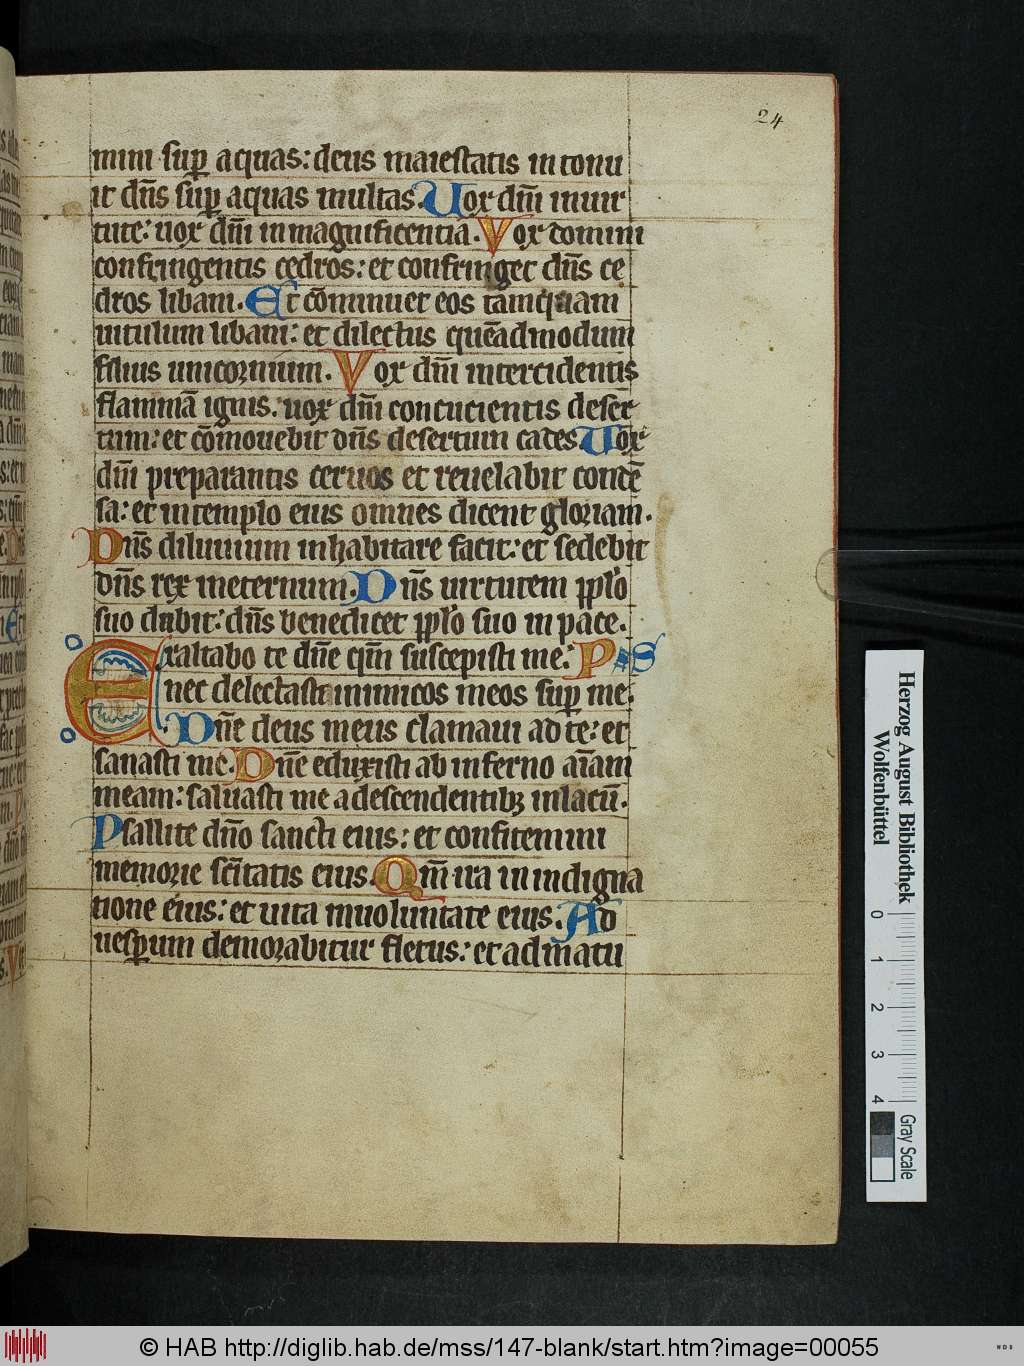 24
mini sup̱ aquas: deus maiestatis intonu
it dn̄s sup̱ aquas multas. Vox dn̄i in uir
tute: uox dn̄i in magnificentia. Vox domini
confringentis cedros: et confringet dn̄s ce
dros libani. Et cōminuet eos tamquam
uitulum libani: et dilectus quēadmodum
filius unicornium. Vox dn̄i intercidentis
flammā ignis. uox dn̄i concutientis deser
tum: et cōmouebit dn̄s desertum cades. Vox
dn̄i preparantis ceruos et reuelabit condē
sa: et in templo eius omnes dicent gloriam.
Dn̄s diluuium inhabitare facit: et sedebit
dn̄s rex in eternum. Dn̄s uirtutem ppl̄o
suo dabit: dn̄s benedicet ppl̄o suo in pace.
Exaltabo te dn̄e qm̄ suscepisti me: PS
nec delectasti inimicos meos sup̱ me.
Dn̄e deus meus clamaui ad te: et
sanasti me. Dn̄e eduxisti ab inferno aīam
meam: saluasti me a descendentibꝫ in lacū.
Psallite dn̄o sancti eius: et confitemini
memorie sc̄itatis eius. Qm̄ ira in indigna
tione eius: et uita in uoluntate eius. Ad
uesp̱um demorabitur fletus: et ad matu
Herzog August Bibliothek
Wolfenbüttel
0 1 2 3 4
Gray Scale
© HAB http://diglib.hab.de/mss/147-blank/start.htm?image=00055